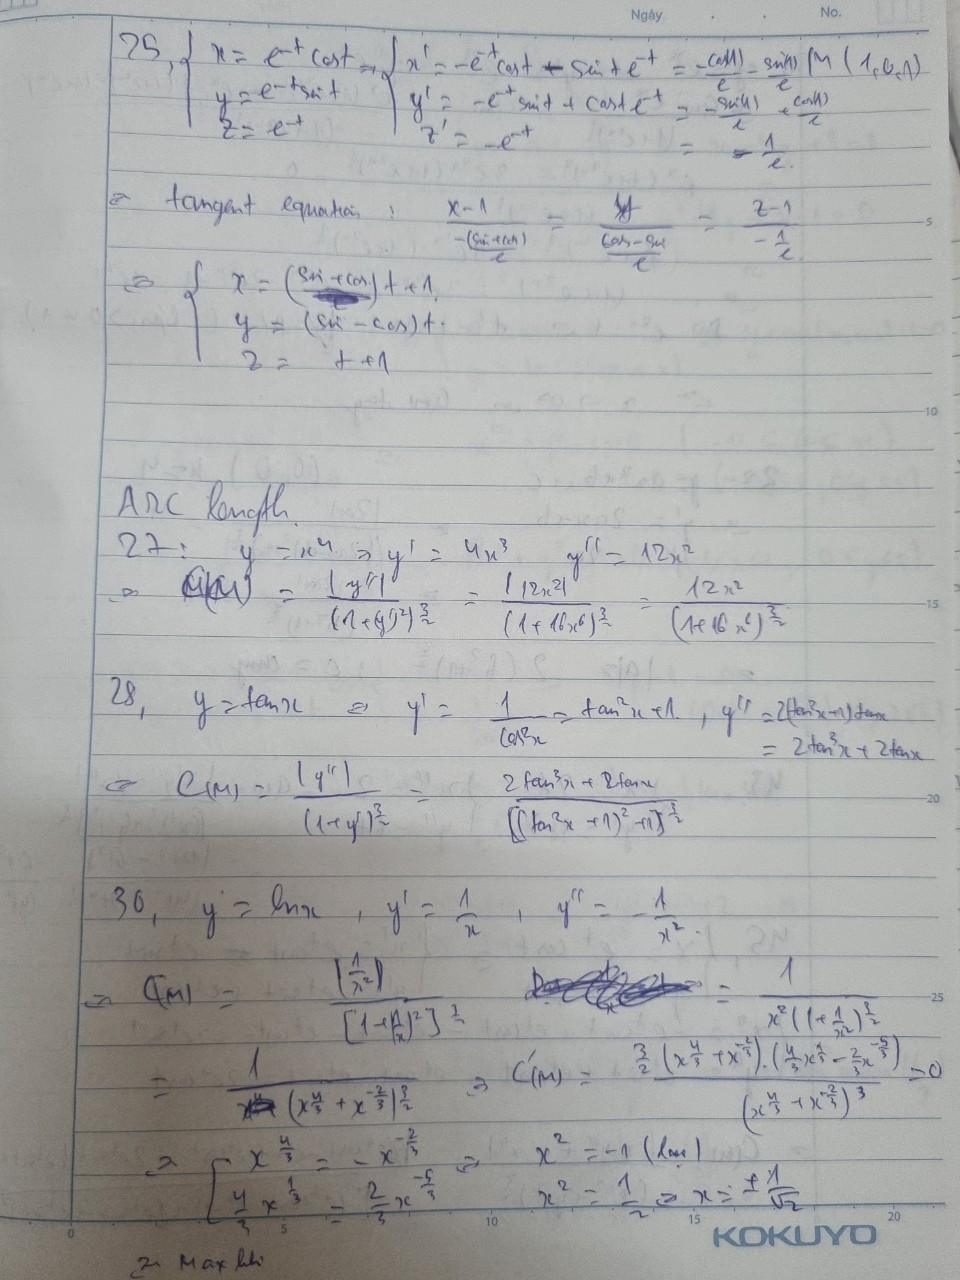 Ngày . . No.
25, { x = e^-t cost => { x' = -e^-t cost - sint e^-t = -cos(1)/e - sin(1)/e M (1,0,1)
y = e^-t sint y' = -e^-t sint + cost e^-t = -sin(1)/e + cos(1)/e
z = e^-t z' = -e^-t = -1/e.
=> tangent equation : (x-1)/(-(sin+cos)/e) = y/((cos-sin)/e) = (z-1)/(-1/e)
5
=> { x = (sin+cos)t+1.
y = (sin-cos)t.
z = t+1
10
ARC length.
27: y = x^4 => y' = 4x^3 y'' = 12x^2
=> C(M) = |y''|/(1+(y')^2)^3/2 = |12x^2|/(1+16x^6)^3/2 = 12x^2/(1+16x^6)^3/2
15
28, y = tanx => y' = 1/cos^2x = tan^2x+1, y'' = 2(tan^2x+1)tanx
= 2tan^3x + 2tanx
=> C(M) = |y''|/(1+y')^3/2 = (2tan^3x + 2tanx)/[(tan^2x+1)^2+1]^3/2
20
30, y = lnx, y' = 1/x, y'' = -1/x^2.
=> C(M) = |1/x^2|/[1+(1/x)^2]^3/2 = 1/(x^2(1+1/x^2)^3/2)
25
= 1/(x^4/3 + x^-2/3)^3/2 => C'(M) = 3/2 (x^4/3 + x^-2/3).(4/3 x^1/3 - 2/3 x^-5/3)/(x^4/3 + x^-2/3)^3 = 0
=> [ x^4/3 = -x^-2/3 => x^2 = -1 (loại)
4/3 x^1/3 = 2/3 x^-5/3 x^2 = 1/2 => x = ±1/√2
0 5 10 15 20
KOKUYO
=> Max khi